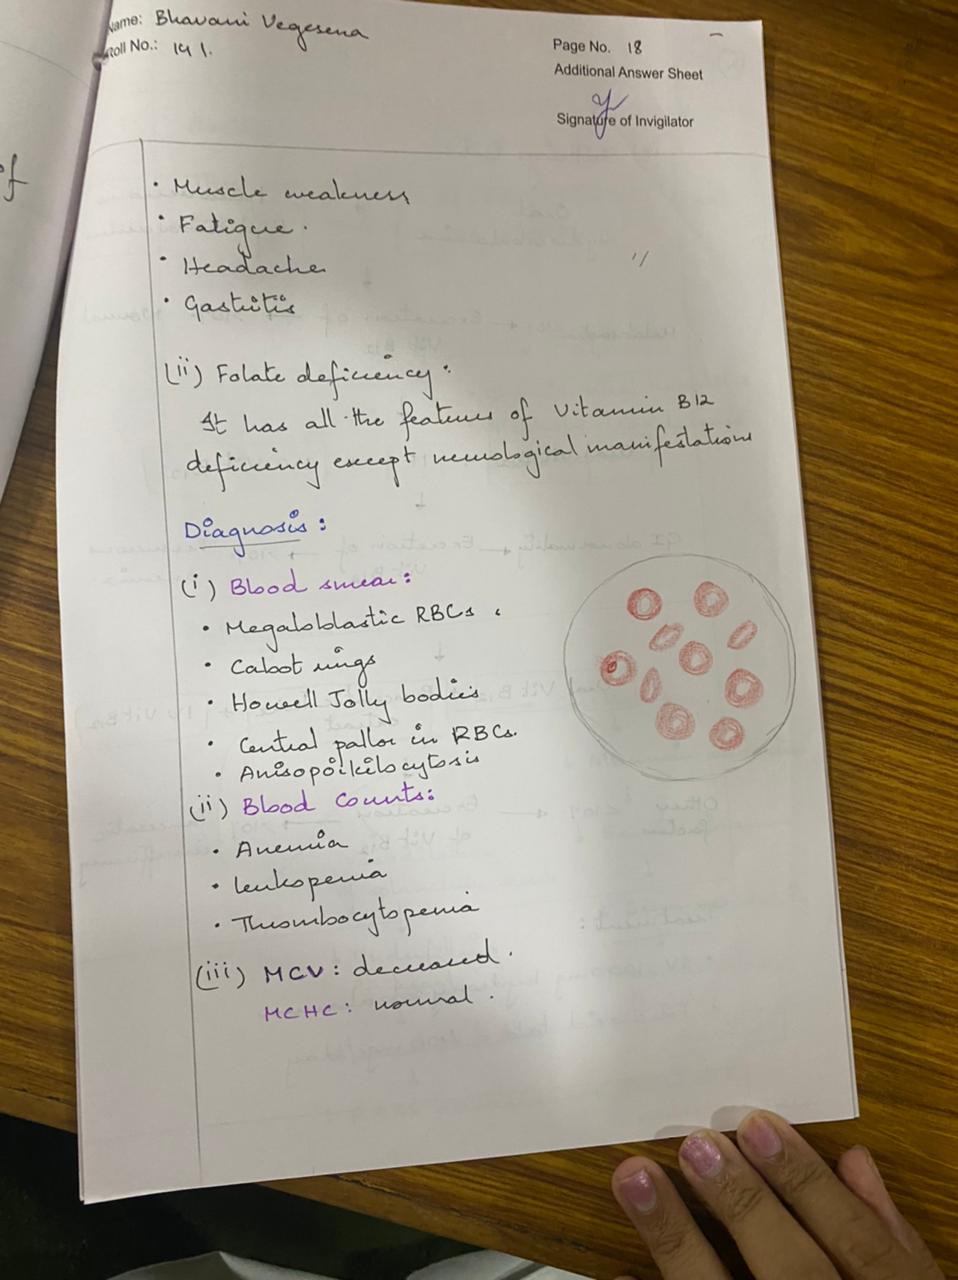 Name: Bhavani Vegesena
Roll No.: 191.
Page No. 18
Additional Answer Sheet
Signature of Invigilator
of
• Muscle weakness
• Fatigue.
• Headache
• Gastritis
(ii) Folate deficiency:
It has all the features of Vitamin B12
deficiency except neurological manifestations
Diagnosis:
(i) Blood smear:
• Megaloblastic RBCs.
• Cabot rings
• Howell Jolly bodies
• Central pallor in RBCs.
• Anisopoikilocytosis
(ii) Blood Counts:
• Anemia
• leukopenia
• Thrombocytopenia
(iii) MCV: decreased.
MCHC: normal.